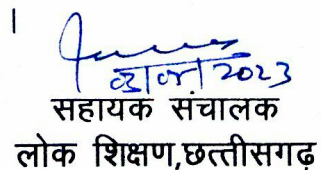 2023
सहायक संचालक
लोक शिक्षण,छत्तीसगढ़